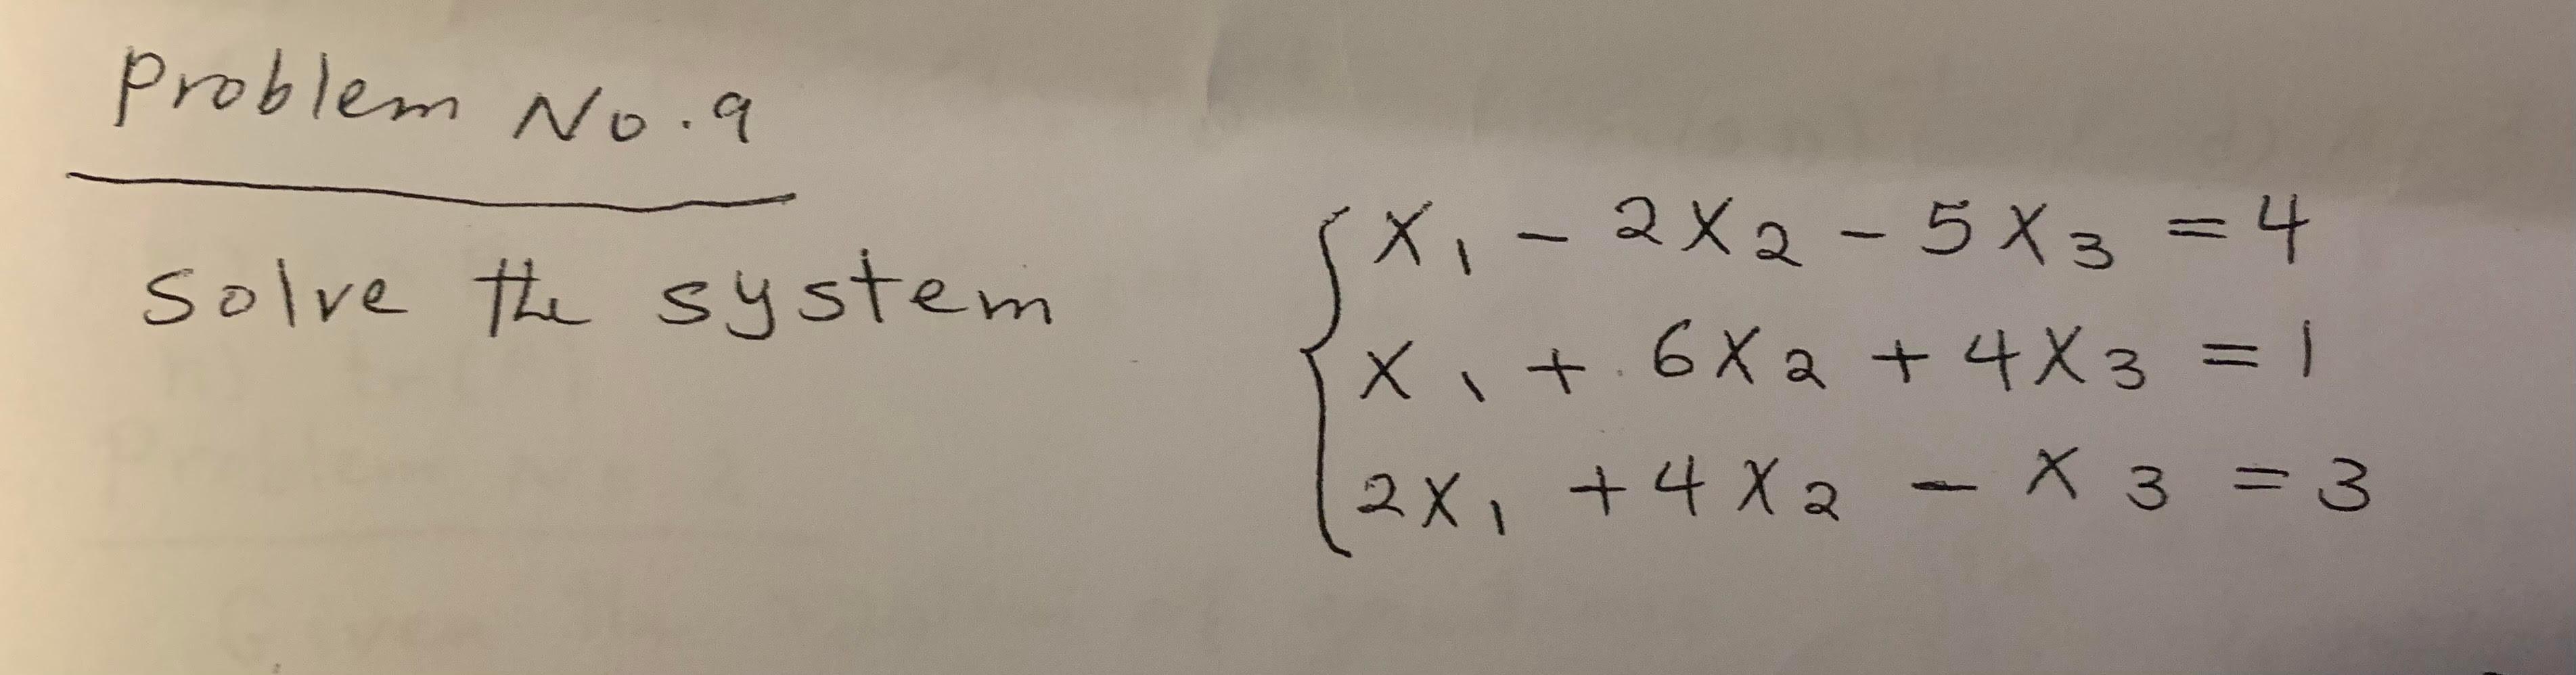 Problem No. 9
Solve the system
x₁ - 2x₂ - 5x₃ = 4
x₁ + 6x₂ + 4x₃ = 1
2x₁ + 4x₂ - x₃ = 3